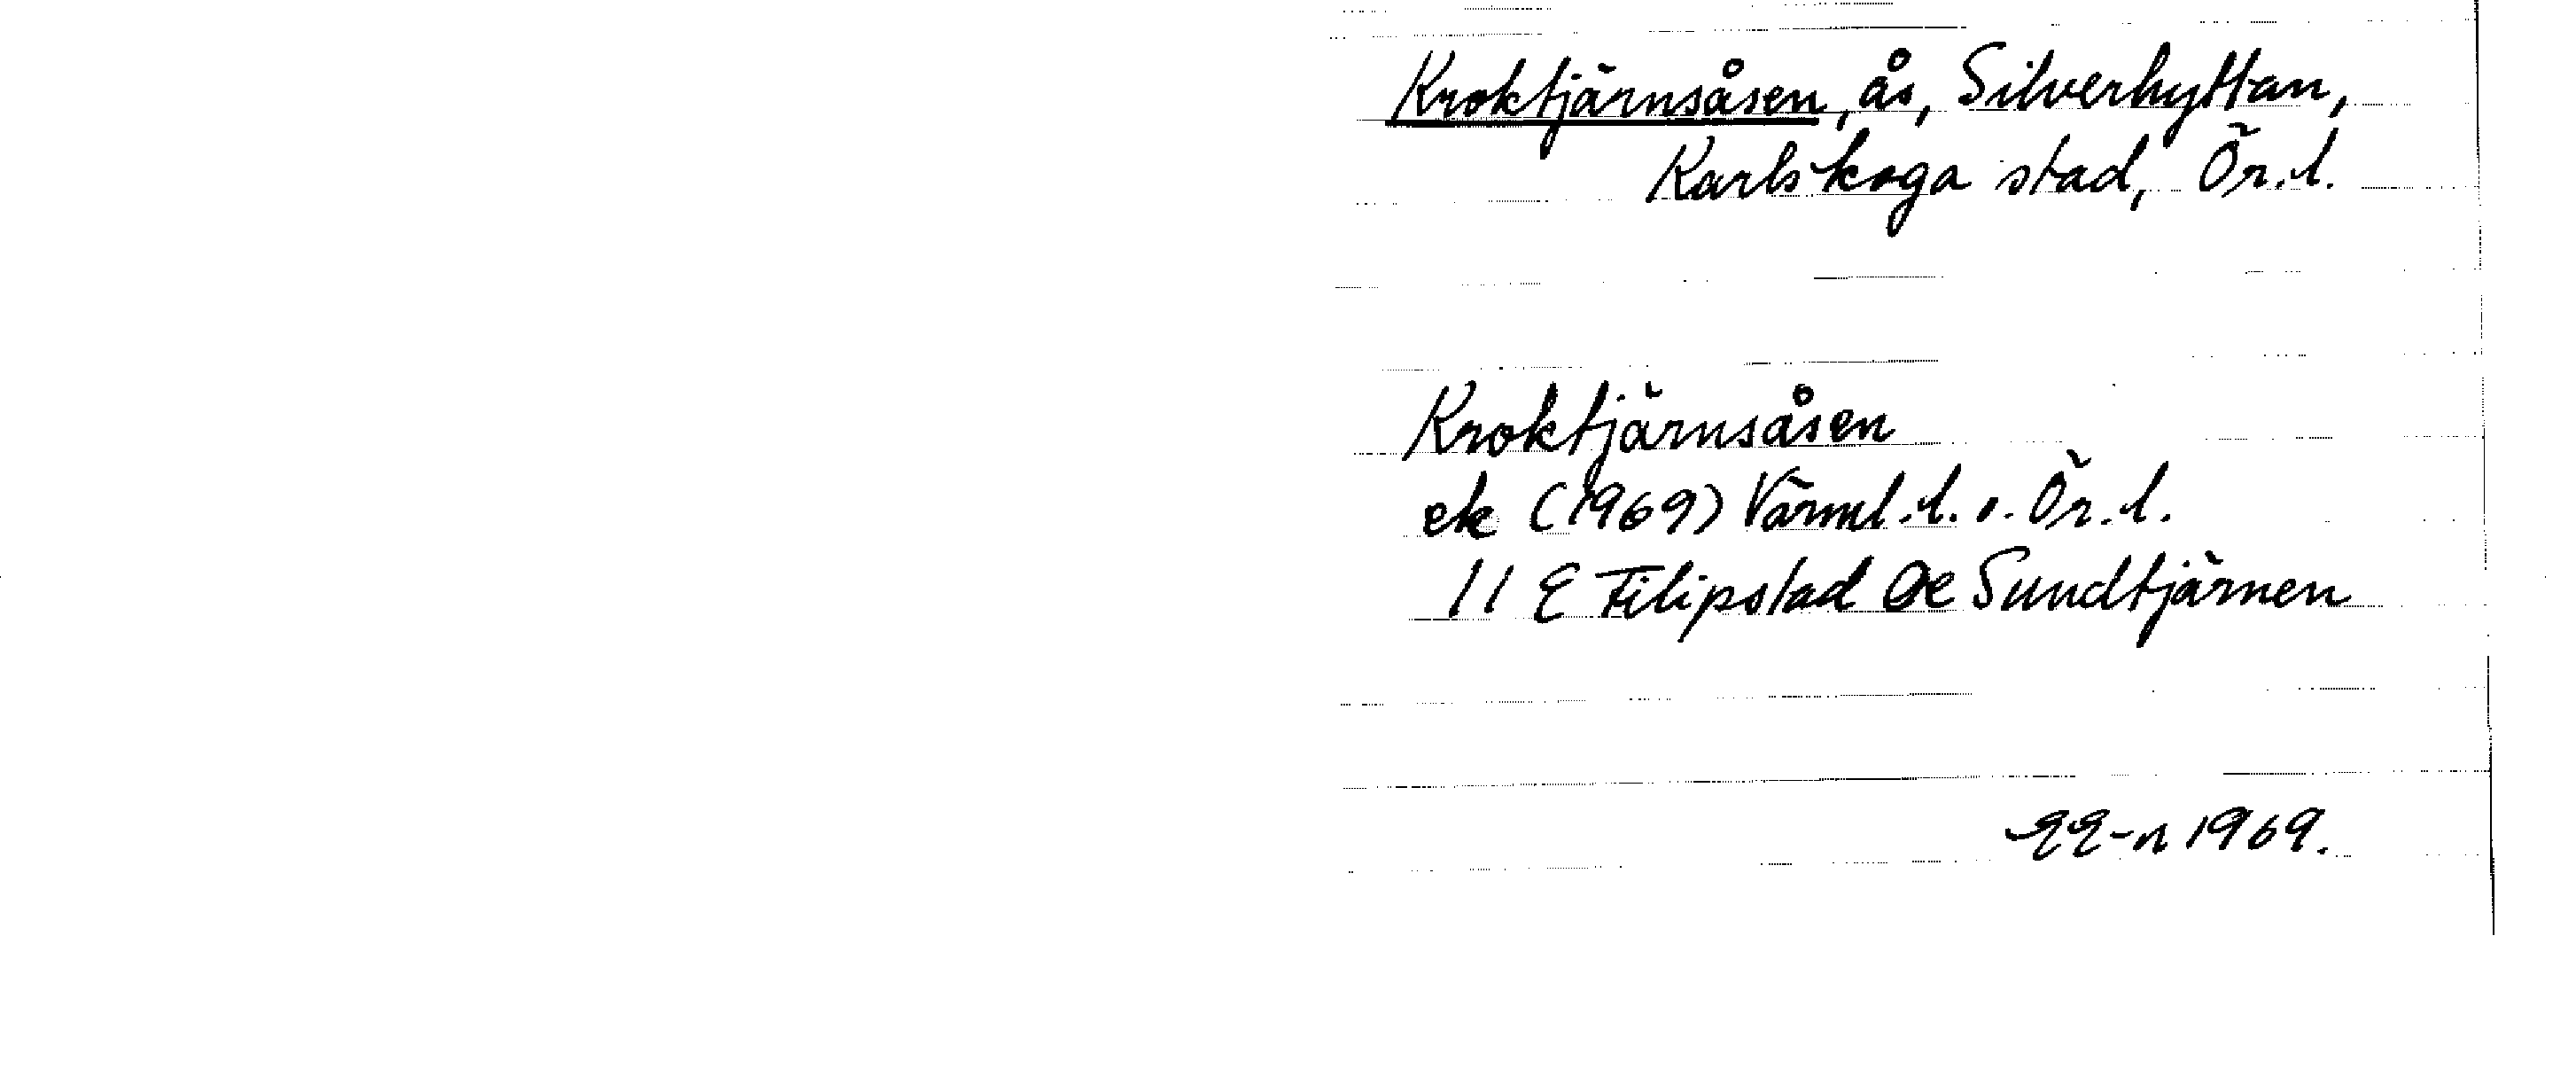 Kroktjärnsåsen, ås, Silverhyttan,
Karlskoga stad, Ör.l.
Kroktjärnsåsen
ek (1969) Värml.l. o. Ör.l.
11 E Filipstad 0e Sundtjärnen
EE-n 1969.